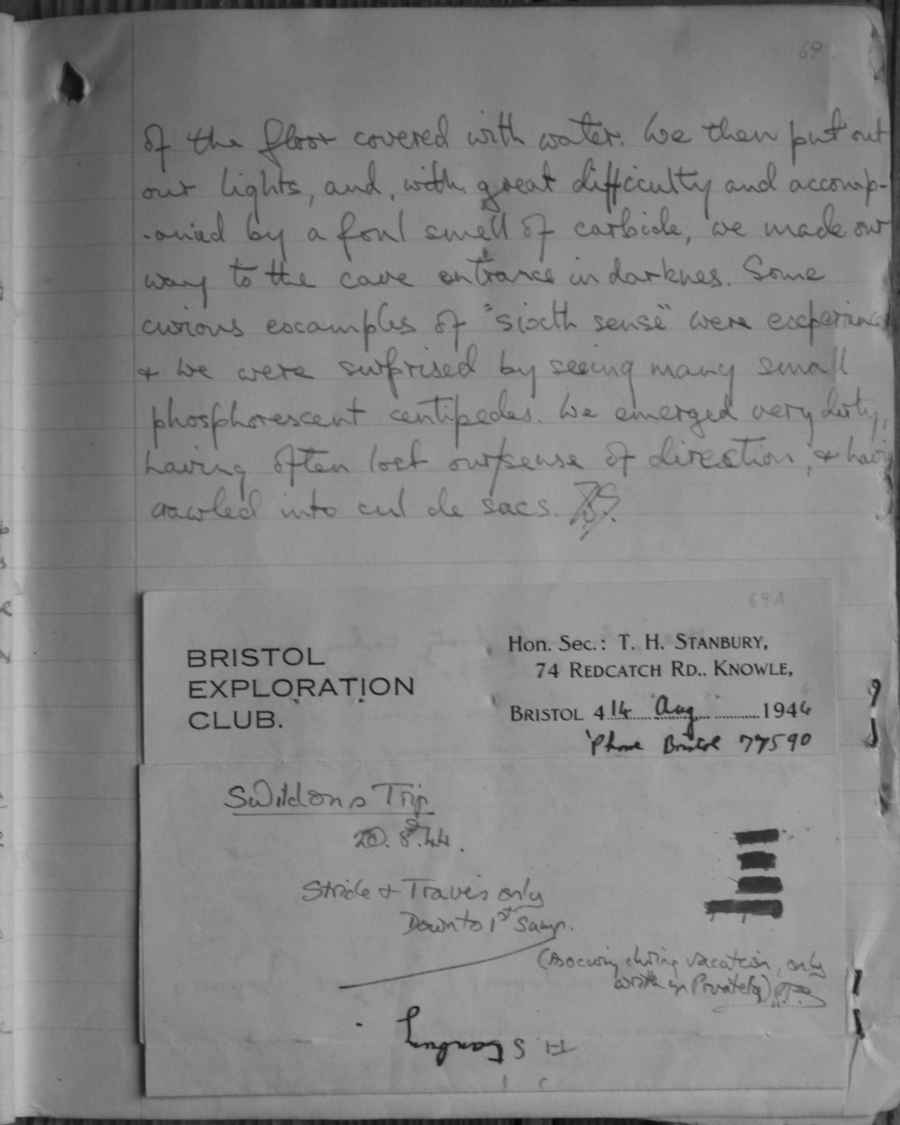 69
of the floor covered with water. We then put out
our lights, and, with great difficulty and accomp-
-anied by a foul smell of carbide, we made our
way to the cave entrance in darknes. Some
curious examples of "sixth sense" were experienc
+ we were surprised by seeing many small
phosphorescent centipedes. We emerged very dirty,
having often lost our sense of direction, + havi
crawled into cul de sacs.
69A
BRISTOL
EXPLORATION
CLUB.
Hon. Sec.: T. H. STANBURY,
74 REDCATCH RD., KNOWLE,
BRISTOL 4 14 Aug 1946
'Phone Bristol 77590
Swildons Trip
20.8.44.
Stride + Travis only
Down to 1st Sump.
(Occuring during vacation, only
written up Privately)
H Stanbury